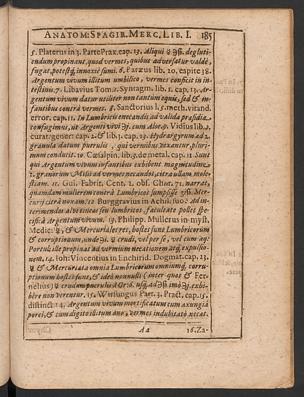 ANATOM: SPAGIR. MERC. LIB. I. 185
5. Platerus in 3. Parte Prax. cap. 13. Aliqui
tiendum propinant, quod vermes, quibus adversatur valdè,
fugat, potestq; innoxiè sumi. 6. Paræus lib. 20. capite 38.
Argentum vivum illitum umbilico, vermes conficit in in-
testinis. 7. Libavius Tom. 2. Syntagm. lib. 1. cap. 13. Ar-
gentum vivum datur utiliter non tantùm equis, sed & in-
fantibus contra vermes. 8. Sanctorius l. 5. meth. vitand.
error. cap. 11. In Lumbricis enecandis ad valida præsidia
confugimus, ut Argenti vivi cum Aloe. 9. Vidius lib. 2.
curat. gener. cap. 2. & lib. 1. cap. 13. Hydrargyrum ad 2.
granula datum puerulis, qui vermibus vexantur, pluri-
mum conducit. 10. Cæsalpin. lib. 3. de metal. cap. 11. Sunt
qui Argentum vivum infantibus exhibent magnitudine
2. granorum Milii ad vermes necandos, citra ullam mole-
stiam. 11. Gui. Fabrin. Cent. 1. obs. Chir. 71. narrat,
quandam mulierem contrà Lumbricos sumpsisse Mer-
curij citra noxam. 12. Burggravius in Achil. suo: Ad in-
terimendum alvi tineas seu lumbricos, facultate pollet spe-
cificâ Argentum vivum. 13. Philipp. Mullerus in myst.
Medic. & Mercuriales res, hostes sunt Lumbricorum
& corruptinum undè crudi, vel per se, vel cum aq;
Portulacæ propinat ad vermium necationem atq; expulsio-
nem. 14. Joh: Vincentius in Enchirid. Dogmat. cap. 23.
& Mercurialia omnia Lumbricorum omniumq; corru-
ptinum hostes sunt, & alibi
nelius) crudum puerulis à Grs. usq; ad exhi-
bére non verentur. 15. Wirtungus Part. 3. Pract. cap. 15.
distinct. 14. Argentum vivum mortificatum cum axungiâ
porci, & cum digito illitum ano, vermes indubitatò necat.
Aa 16. Za-